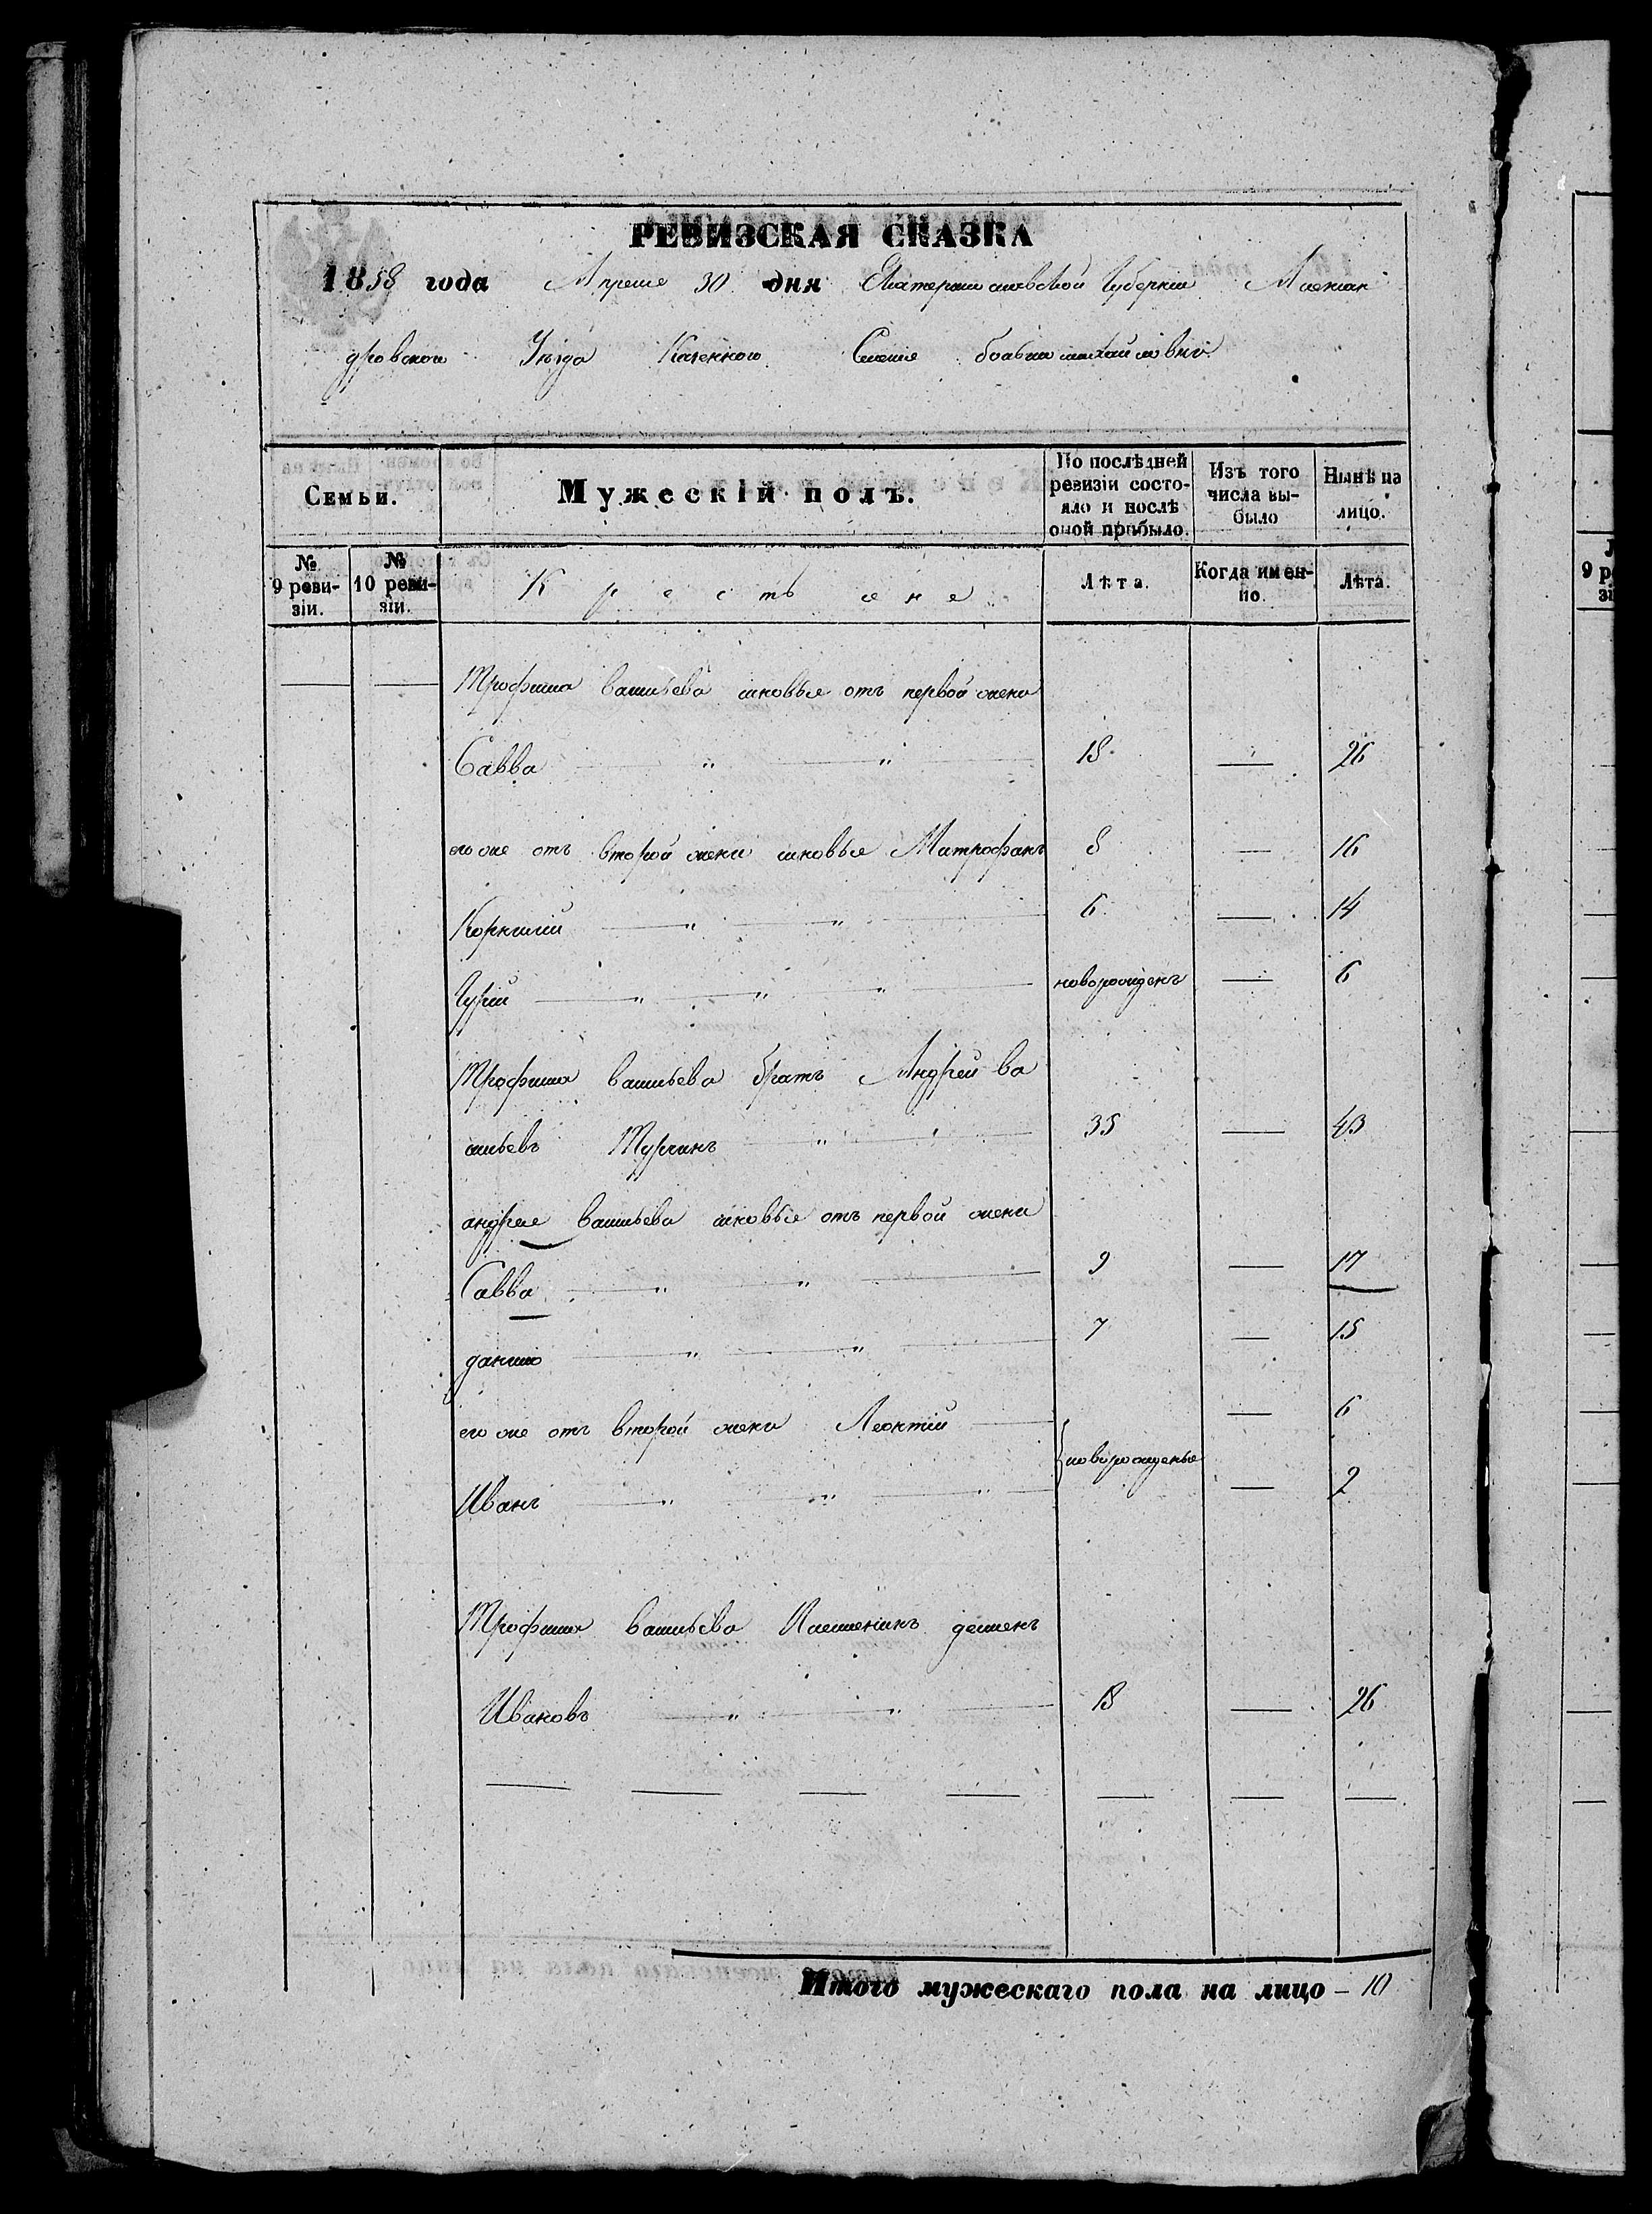 РЕВИЗСКАЯ СКАЗКА
1858 года Апреля 30 дня Екатеринославской Губерніи Алексан
дровского Уѣзда Казенного Селенія большемихайловки
Семьи. Мужескій полъ. По послѣдней ревизіи состояло и послѣ оной прибыло. Изъ того числа выбыло Нынѣ на лицо.
№ 9 ревизіи. № 10 ревизіи. Крестьяне Лѣта. Когда именно. Лѣта.
— — Трофима васильева сыновья отъ первой жены
Савва — „ — „ — 18 — 26
его же отъ второй жены сыновья Митрофанъ 8 — 16
Корнилий — „ — „ — 6 — 14
Гурій — „ — „ — „ — новорожденъ — 6
Трофима васильева братъ Андрей ва
сильевъ Турчинъ — „ — „ — 35 — 43
андрея васильева сыновья отъ первой жены
Савва — „ — „ — 9 — 17
данило — „ — „ — 7 — 15
его же отъ второй жены Леонтій — — 6
новорожденые
Иванъ — „ — „ — „ — — 2
Трофима васильева Племенникъ демьенъ
Ивановъ — „ — „ — 18 — 26
— — — — — — —
Итого мужескаго пола на лицо – 10
9 ре
зі